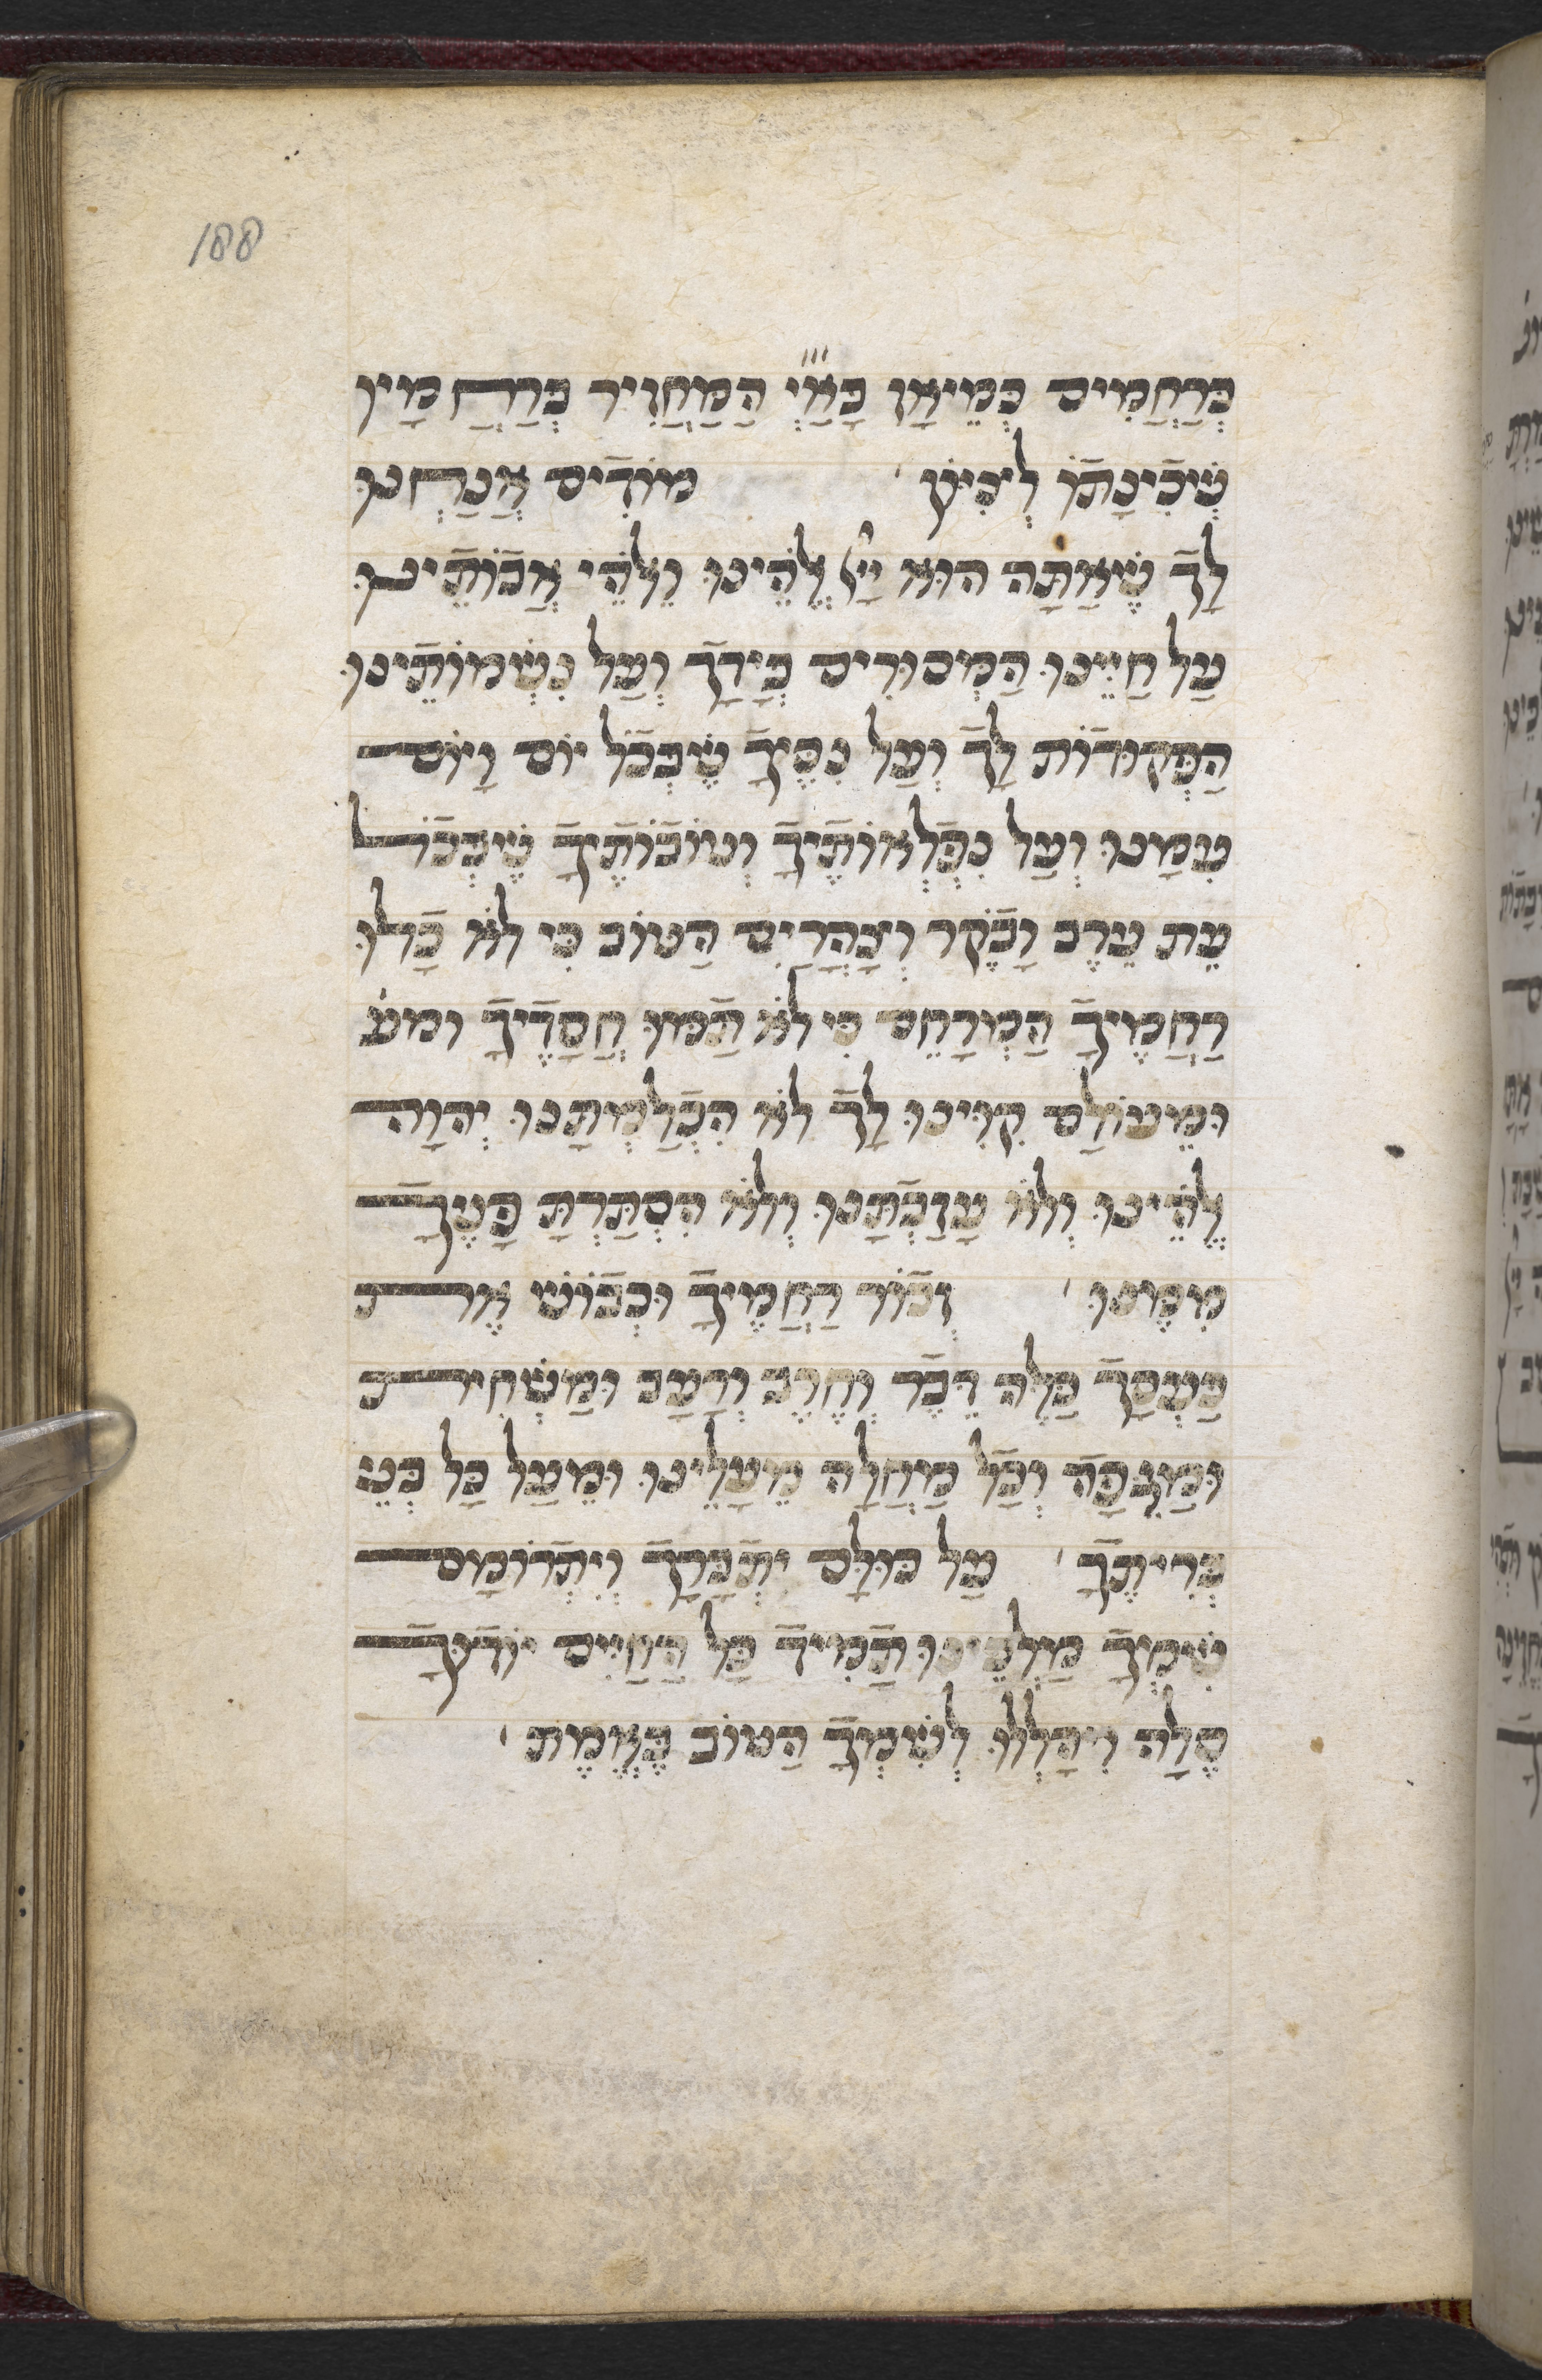 188
בְּרַחֲמִים כְּמֵיאָז בָּאַ״יְ הַמַּחֲזִיר בְּרַחֲמָיו
שְׁכִינָתוֹ לְצִיּוֹן׳ מוֹדִים אֲנַחְנוּ
לָךְ שֶׁאַתָּה הוּא יְיָ אֱלֹהֵינוּ וֵאלֹהֵי אֲבוֹתֵינוּ
עַל חַיֵּנוּ הַמְּסוּרִים בְּיָדָךְ וְעַל נִשְׁמוֹתֵינוּ
הַפְּקוּדוֹת לָךְ וְעַל נִסֶּיךָ שֶׁבְּכָל יוֹם וָיוֹם
עִמָּנוּ וְעַל נִפְלְאוֹתֶיךָ וְטוֹבוֹתֶיךָ שֶׁבְּכָל
עֵת עֶרֶב וָבֹקֶר וְצָהֳרַיִם הַטּוֹב כִּי לֹא כָלוּ
רַחֲמֶיךָ הַמְרַחֵם כִּי לֹא תַמּוּ חֲסָדֶיךָ ומע׳
וּמֵעוֹלַם קִוִּינוּ לָךְ לֹא הִכְלַמְתָּנוּ יְהוָה
אֱלֹהֵינוּ וְלֹא עֲזַבְתָּנוּ וְלֹא הִסְתַּרְתָּ פָּנֶיךָ
מִמֶּנּוּ׳ זְכוֹר רַחֲמֶיךָ וּכְבוֹשׁ אֶת
כַּעְסָךְ כַּלֵּה דֶּבֶר וְחֶרֶב וְרָעָב וּמַשְׁחִית
וּמַגֵּפָה וְכָל מַחֲלָה מֵעָלֵינוּ וּמֵעַל כָּל בְּנֵי
בְּרִיתֶךָ׳ עַל כּוּלָּם יִתְבָּרַךְ וְיִתְרוֹמָם
שִׁמְךָ מַלְכֵּינוּ תָּמִיד כָּל הַחַיִּים יוֹדוּךָ
סֶלָה וִיהַלְלוּ לְשִׁמְךָ הַטּוֹב בֶּאֱמֶת׳